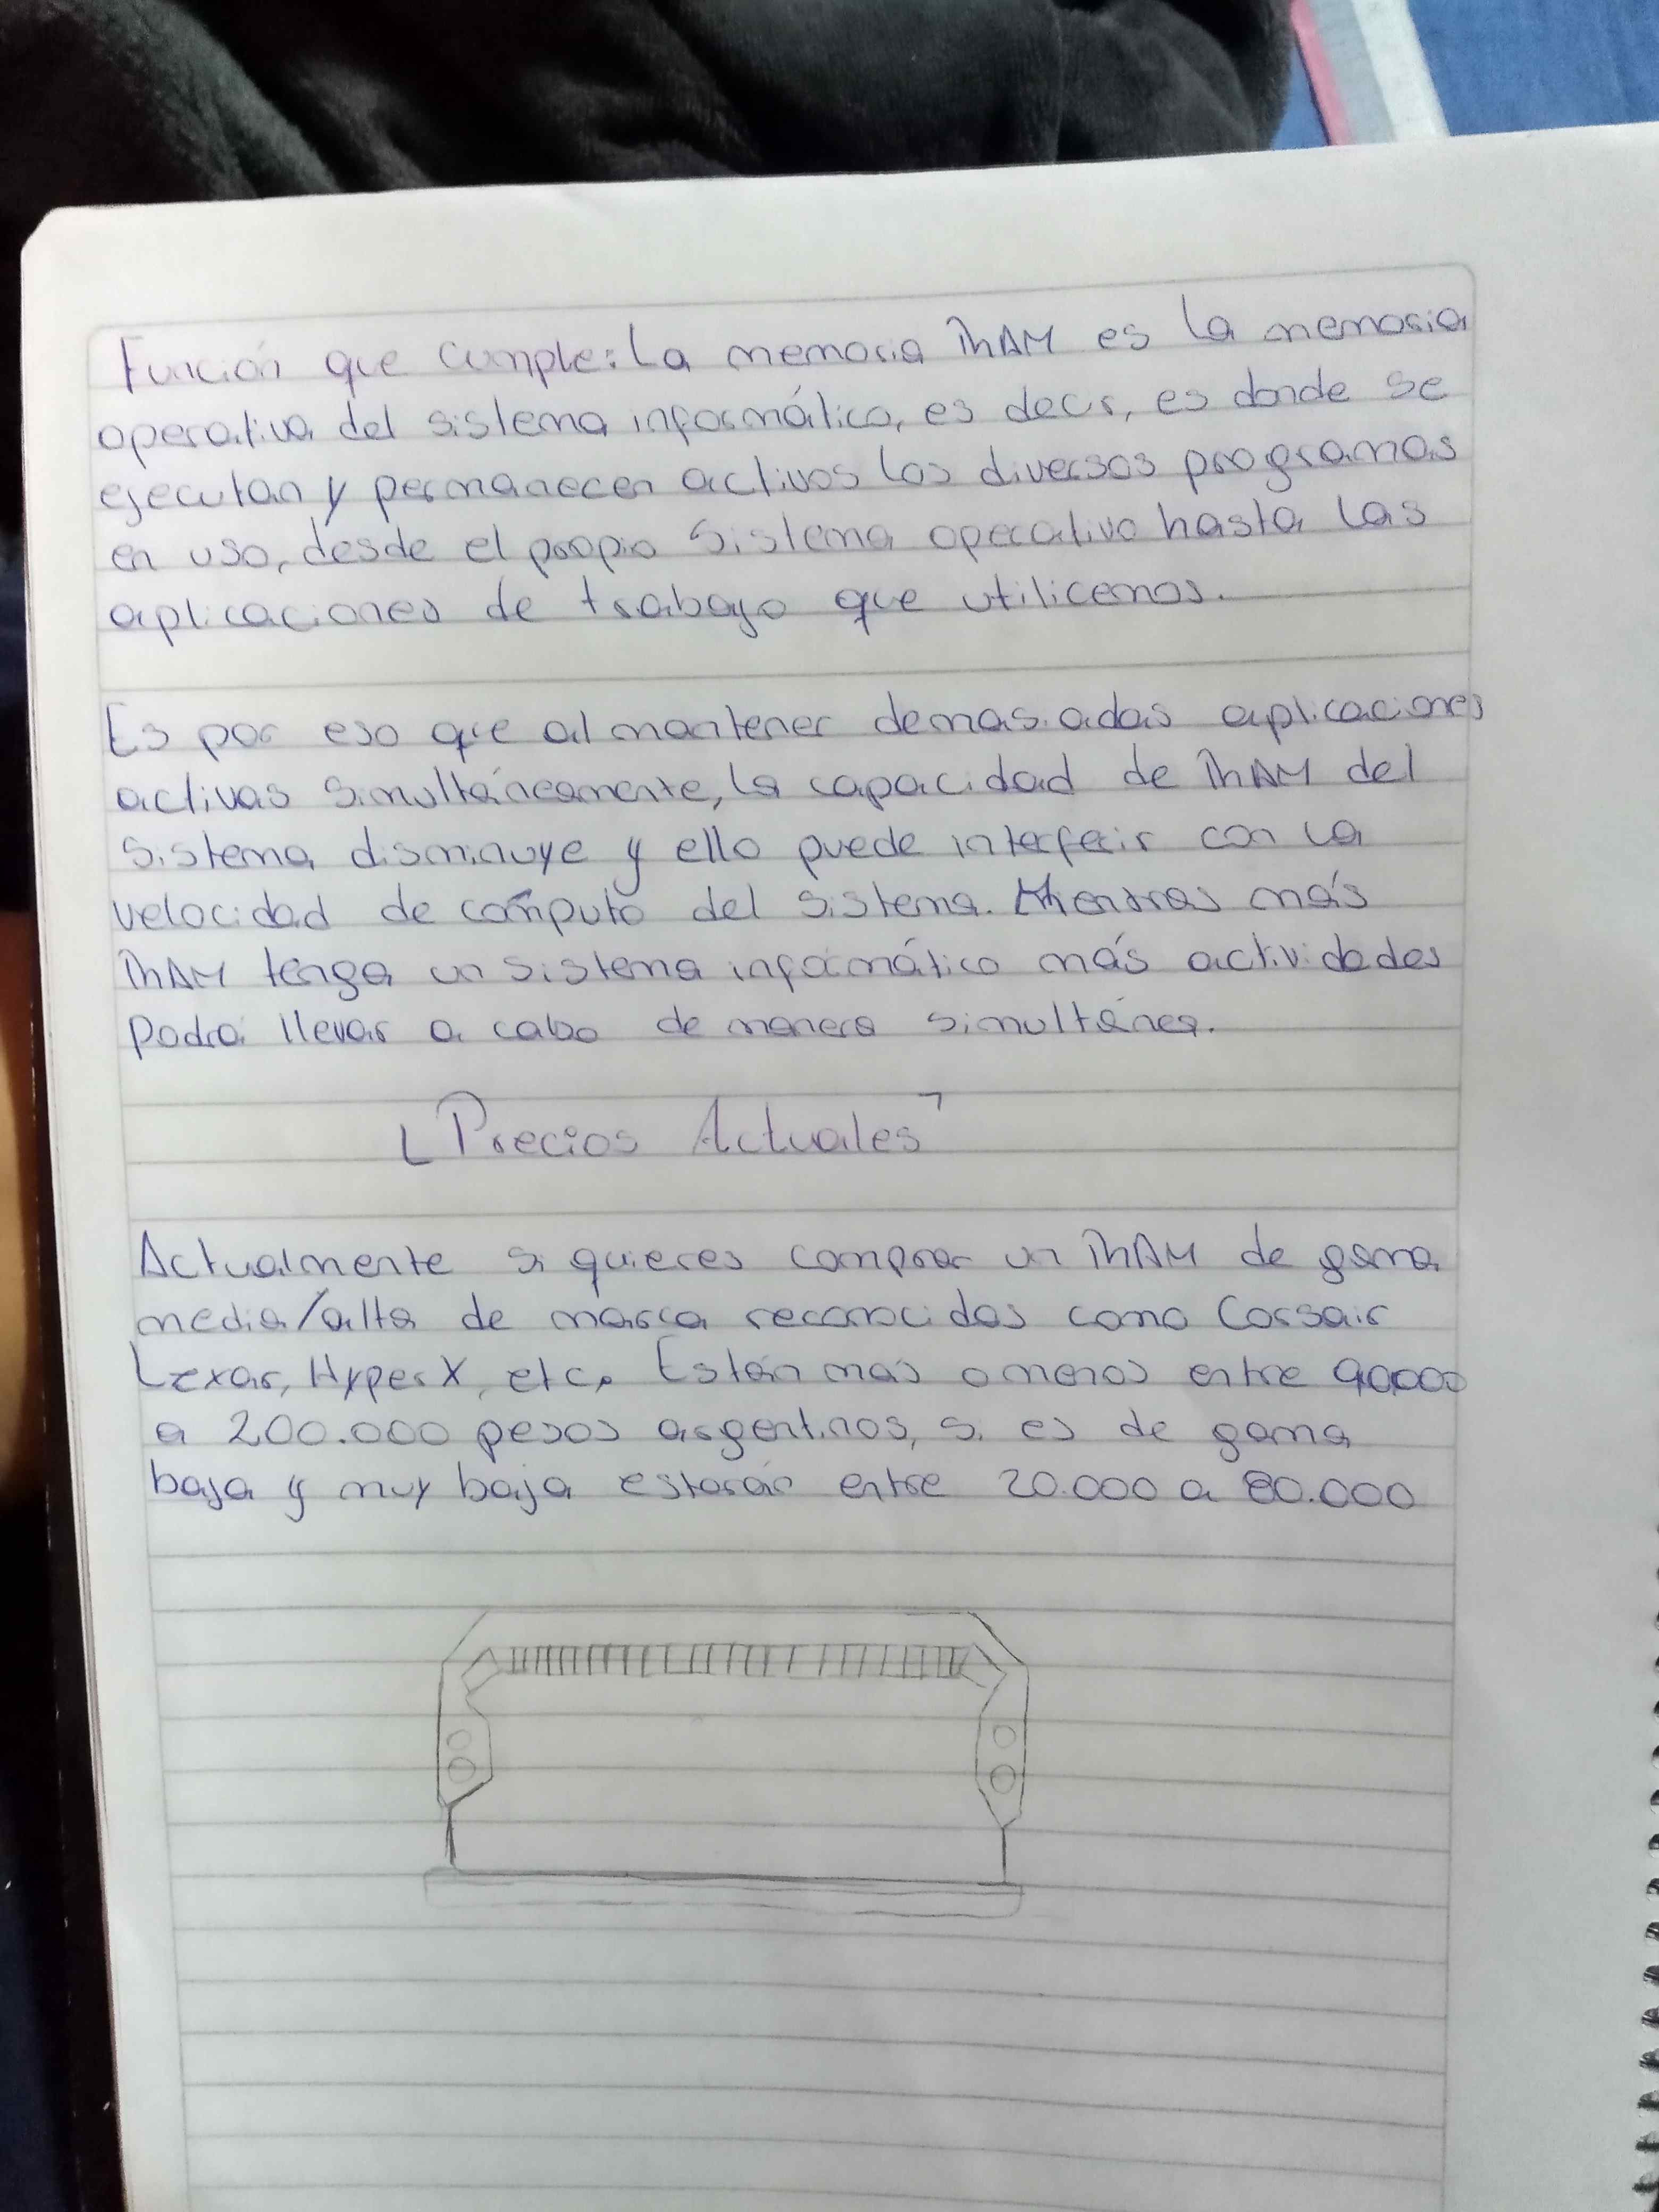 Función que cumple: La memoria RAM es la memoria
operativa del sistema informático, es decir, es donde se
ejecutan y permanecen activos los diversos programas
en uso, desde el propio sistema operativo hasta las
aplicaciones de trabajo que utilicemos.
Es por eso que al mantener demasiadas aplicaciones
activas simultáneamente, la capacidad de RAM del
sistema disminuye y ello puede interferir con la
velocidad de cómputo del sistema. Mientras más
RAM tenga un sistema informático más actividades
podrá llevar a cabo de manera simultánea.
Precios Actuales
Actualmente si quieres comprar un RAM de gama
media/alta de marca reconocidas como Corsair
Lexar, HyperX, etc. Están más o menos entre 90.000
a 200.000 pesos argentinos, si es de gama
baja y muy baja estarán entre 20.000 a 80.000